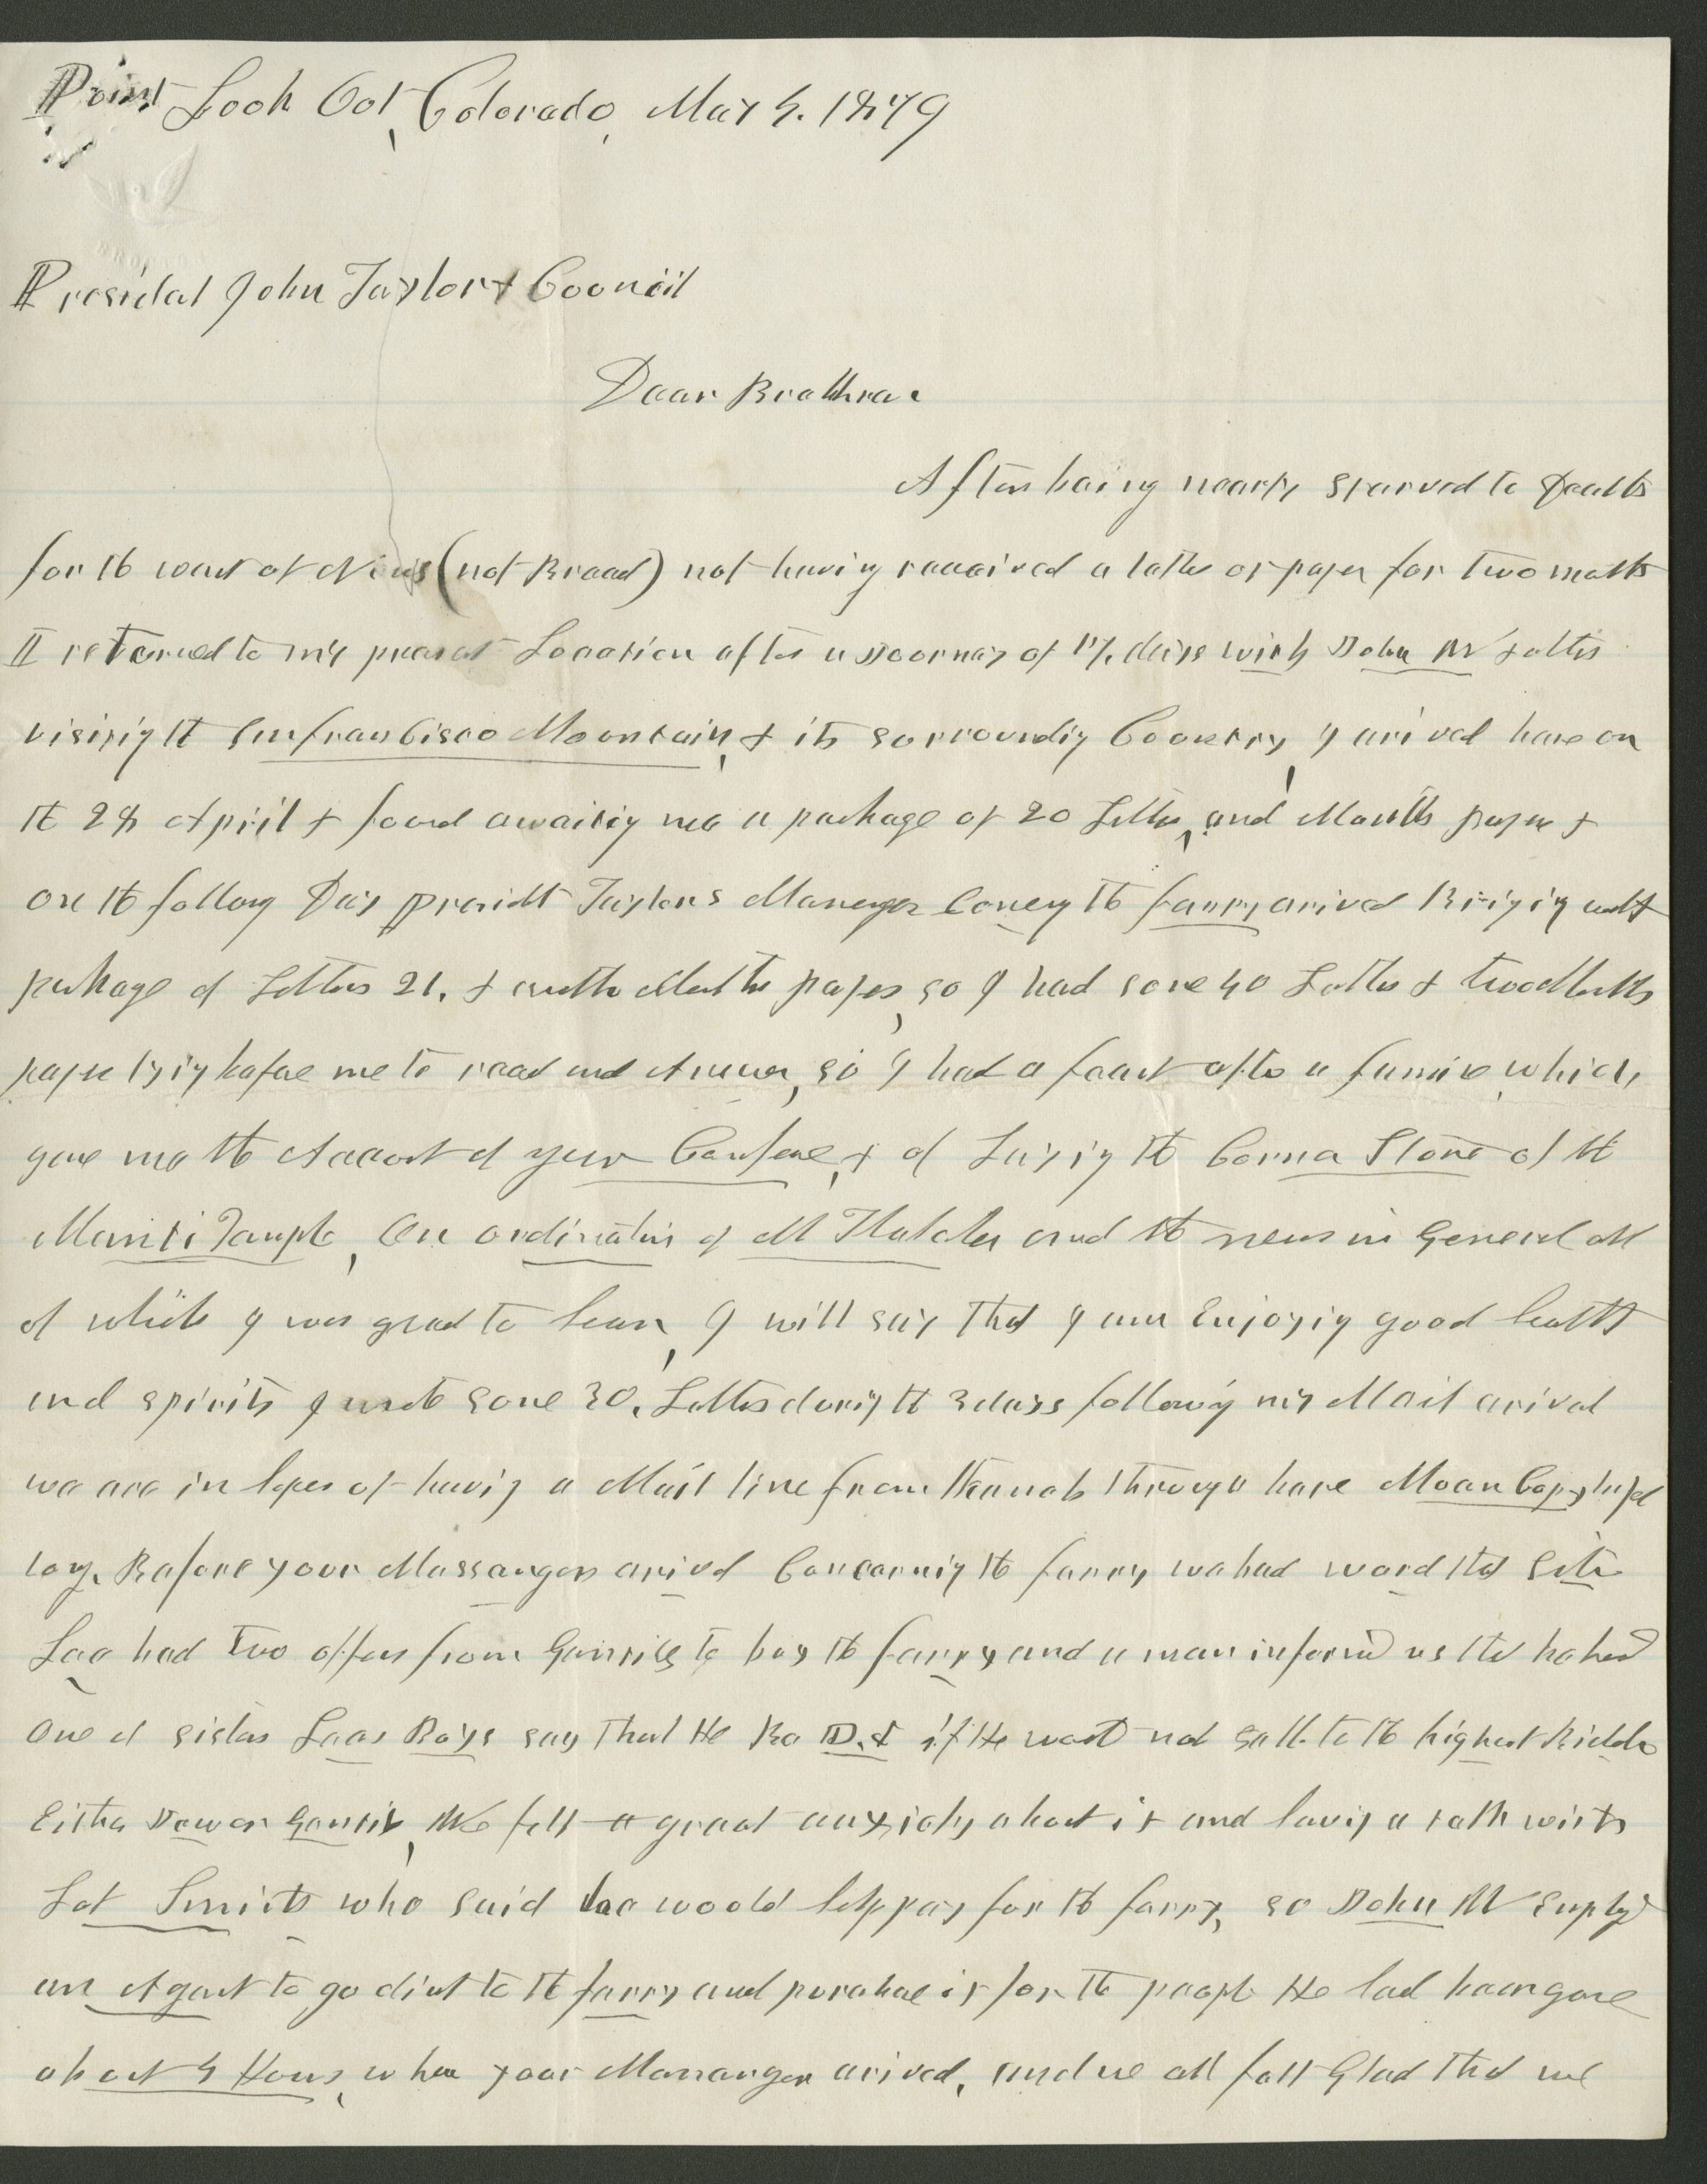 Point Look Out, Colorado, May 5. 1879
President John Taylor & Council
Dear Brethren
After being nearly starved to Death
for the want of News (not Bread) not having received a letter or paper for two months
I returned to my present Location after a Journey of 17 days with John W
visiting the San Francisco Mountain, & its surrounding Country, I arived here on
the 28 April & found awaiting me a package of 20 Letters, and Months papers &
on the following Day President Taylors Messenger the ferry arived Bringing anoth
package of Letters 21. & another Months papers, so I had some 40 Letters & two Months
papers lying before me to read and Answer, so I had a feast after a famine which
gave me the Account of your Conference, & of Laying the Corner Stone of the
Manti Temple, An ordination of M Thatcher and the news in General all
of which I was glad to hear, I will say that I am Enjoying good health
and spirits I wrote some 30. Letters during the 3 days following my Mail arival
we are in hopes of having a Mail line from Kanab through here Moan Copy before
long. Before your Messenger arived Concerning the ferry we had word that Sister
Lee had two offers from Gentiles to buy the ferry and a man informed us that he heard
One of sisters Lees Boys say that He Be D.d if He would not sell to the highest Bidder
Either Jew or Gentile, We felt a great anxiety about it and having a talk with
Lot Smith who said he would help pay for the ferry, so John W Employed
an Agent to go direct to the ferry and purchase it for the people He had been gone
about 5 Hours, when your Messenger arived, and we all felt Glad that we